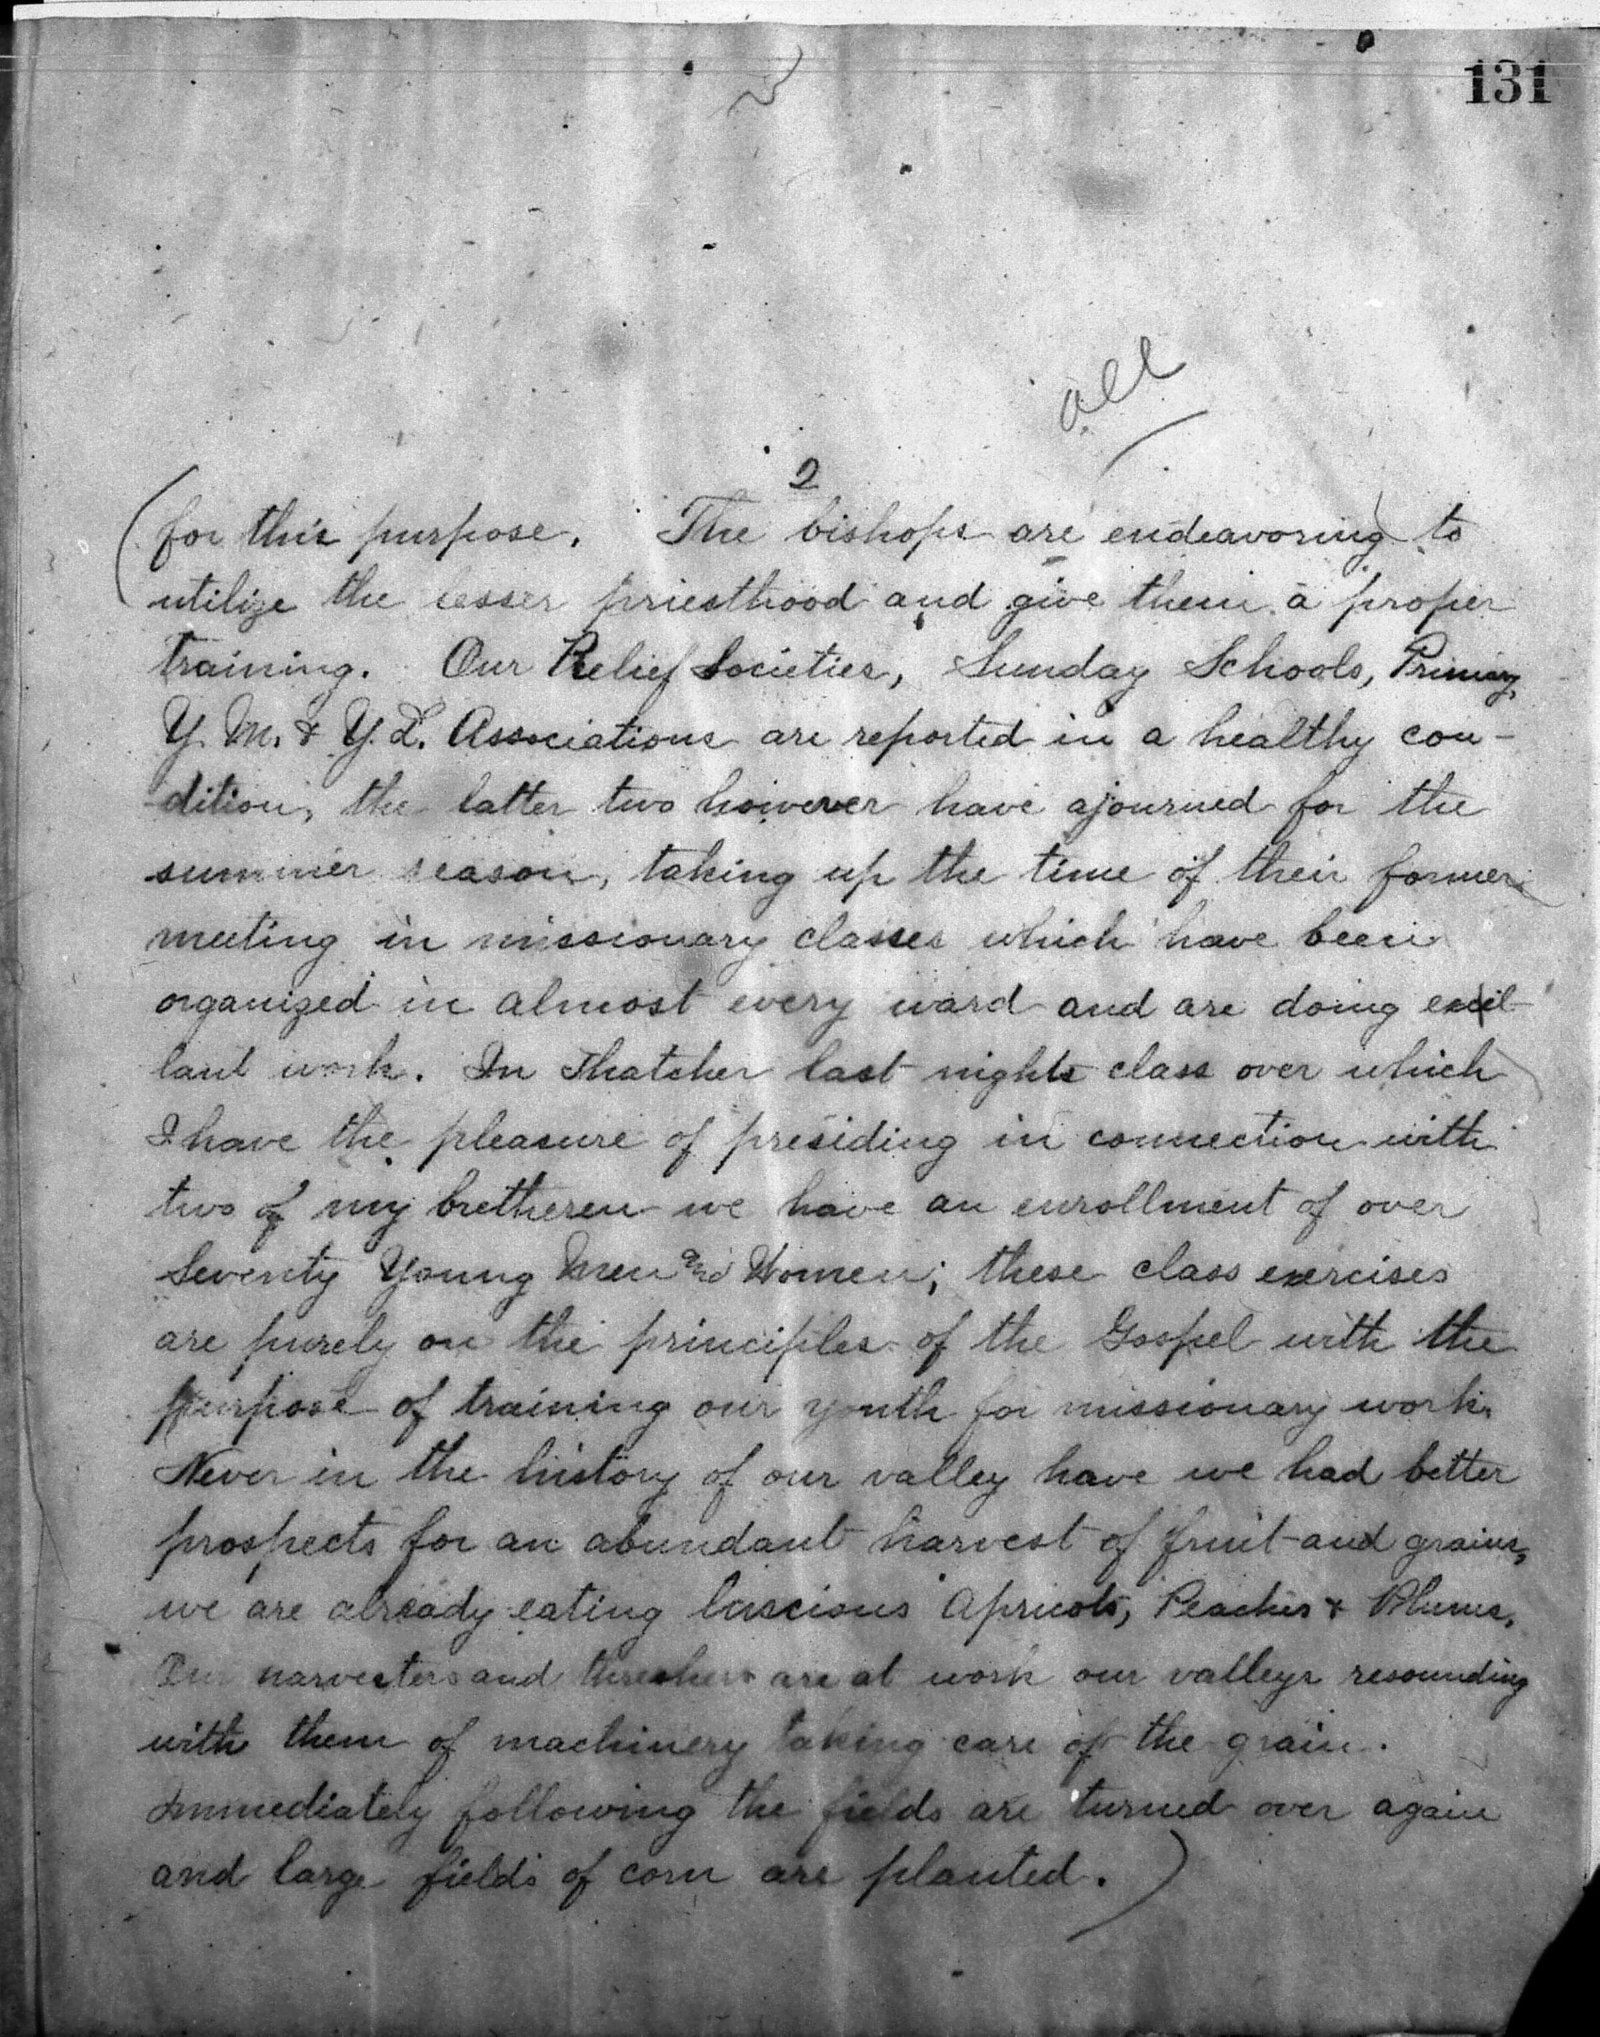 131
all
2
(for this purpose. The bishops are endeavoring to
utilize the lesser priesthood and give them a proper
training. Our Relief Societies, Sunday Schools, Primary,
Y. M. & Y. L. Associations are reported in a healthy con-
dition, the latter two however have ajourned for the
summer season, taking up the time of their former
meeting in missionary classes which have been
organized in almost every ward and are doing excel-
lant work. In Thatcher last nights class over which
I have the pleasure of presiding in connection with
two of my bretheren we have an enrollment of over
Seventy Young Men and Women; these class exercises
are purely on the principles of the Gospel with the
purpose of training our youth for missionary work.
Never in the history of our valley have we had better
prospects for an abundant harvest of fruit and grains,
we are already eating luscious Apricots, Peaches & Plums,
Our harvesters and threshers are at work our valleys resounding
with them of machinery taking care of the grain.
Immediately following the fields are turned over again
and large fields of corn are planted.)